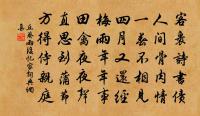 客裏詩書債
人間骨肉情
一春不相見
四月又還經
梅雨年年事
田禽夜夜聲
直思到蒲節
方得侍親庭
丘葵雨後憶家